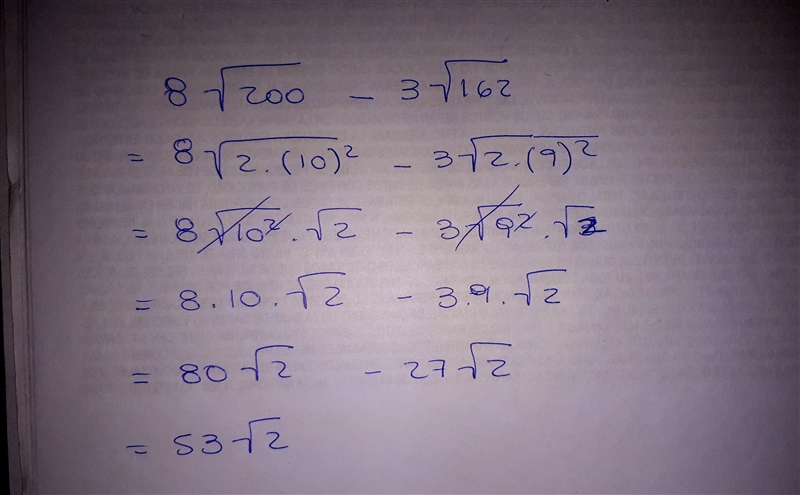 8√200 - 3√162
= 8√2.(10)² - 3√2.(9)²
= 8√10².√2 - 3√9².√2
= 8.10.√2 - 3.9.√2
= 80√2 - 27√2
= 53√2